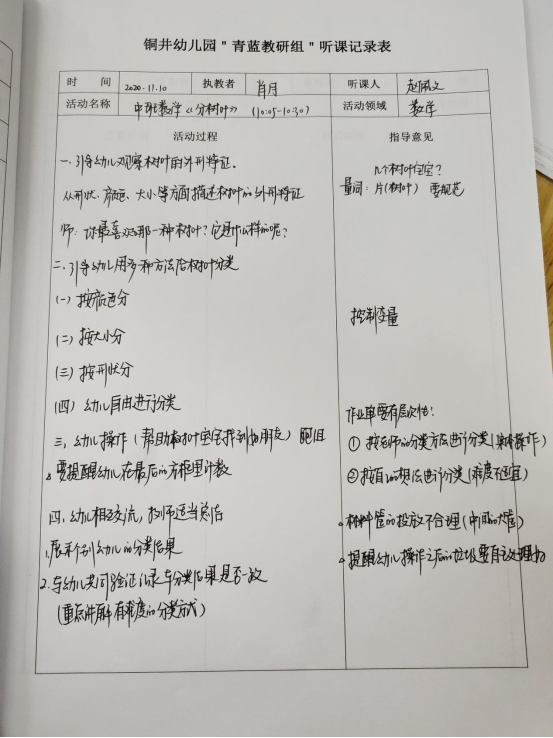 铜井幼儿园"青蓝教研组"听课记录表
时 间 2020.11.10 执教者 肖月 听课人
活动名称 中班数学《分树叶》 (10:05-10:30) 活动领域 数学
活动过程
一、引导幼儿观察树叶的外形特征。
从形状、颜色、大小等方面描述树叶的外形特征
师:你最喜欢哪一种树叶?它是什么样的呢?
二、引导幼儿用多种方法给树叶分类
(一) 按颜色分
(二) 按大小分
(三) 按形状分
(四) 幼儿自由进行分类
三、幼儿操作(帮助树叶宝宝找到好朋友)
要提醒幼儿在最后的方框里计数
四、幼儿相互交流,教师适当总结
1.展示个别幼儿的分类结果
2.与幼儿共同验证记录与分类结果是否一致
(重点讲解有难度的分类方式)
指导意见
几个树叶宝宝?
量词:片(树叶) 要规范
控制变量
作业单要有层次性!
① 按老师的分类方法进行分类(操作)
②按自己的想法进行分类(难度适宜)
材料筐的投放不合理(中间的大筐)
提醒幼儿操作之后的垃圾要有效处理好